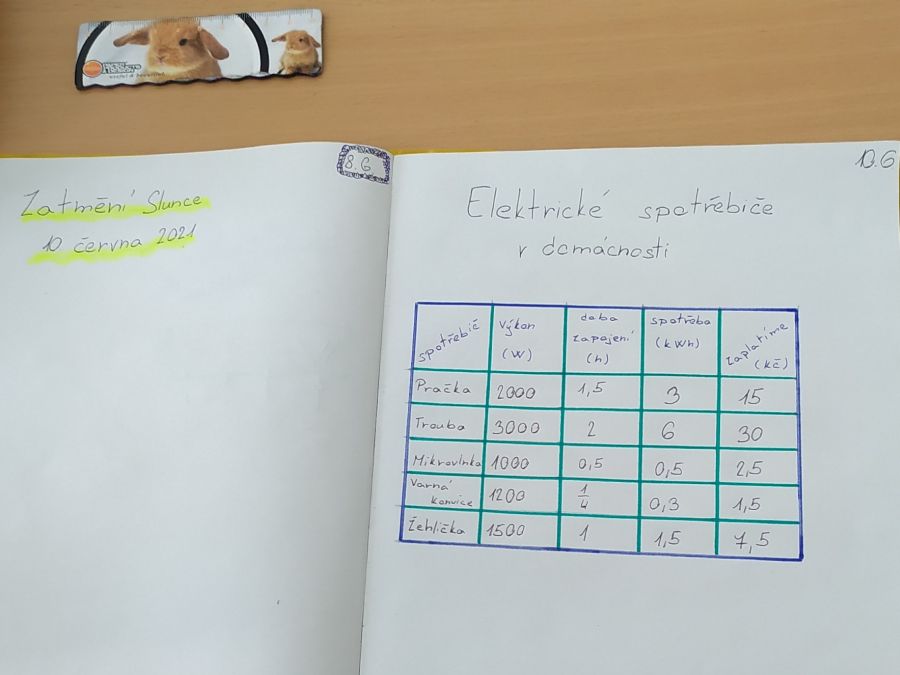 8.6
Zatmění Slunce
10 června 2021
10.6
Elektrické spotřebiče
v domácnosti
spotřebič výkon (W) doba zapojení (h) spotřeba (kWh) zaplatíme (kč)
Pračka 2000 1,5 3 15
Trouba 3000 2 6 30
Mikrovlnka 1000 0,5 0,5 2,5
Varná konvice 1200 1/4 0,3 1,5
Žehlička 1500 1 1,5 7,5